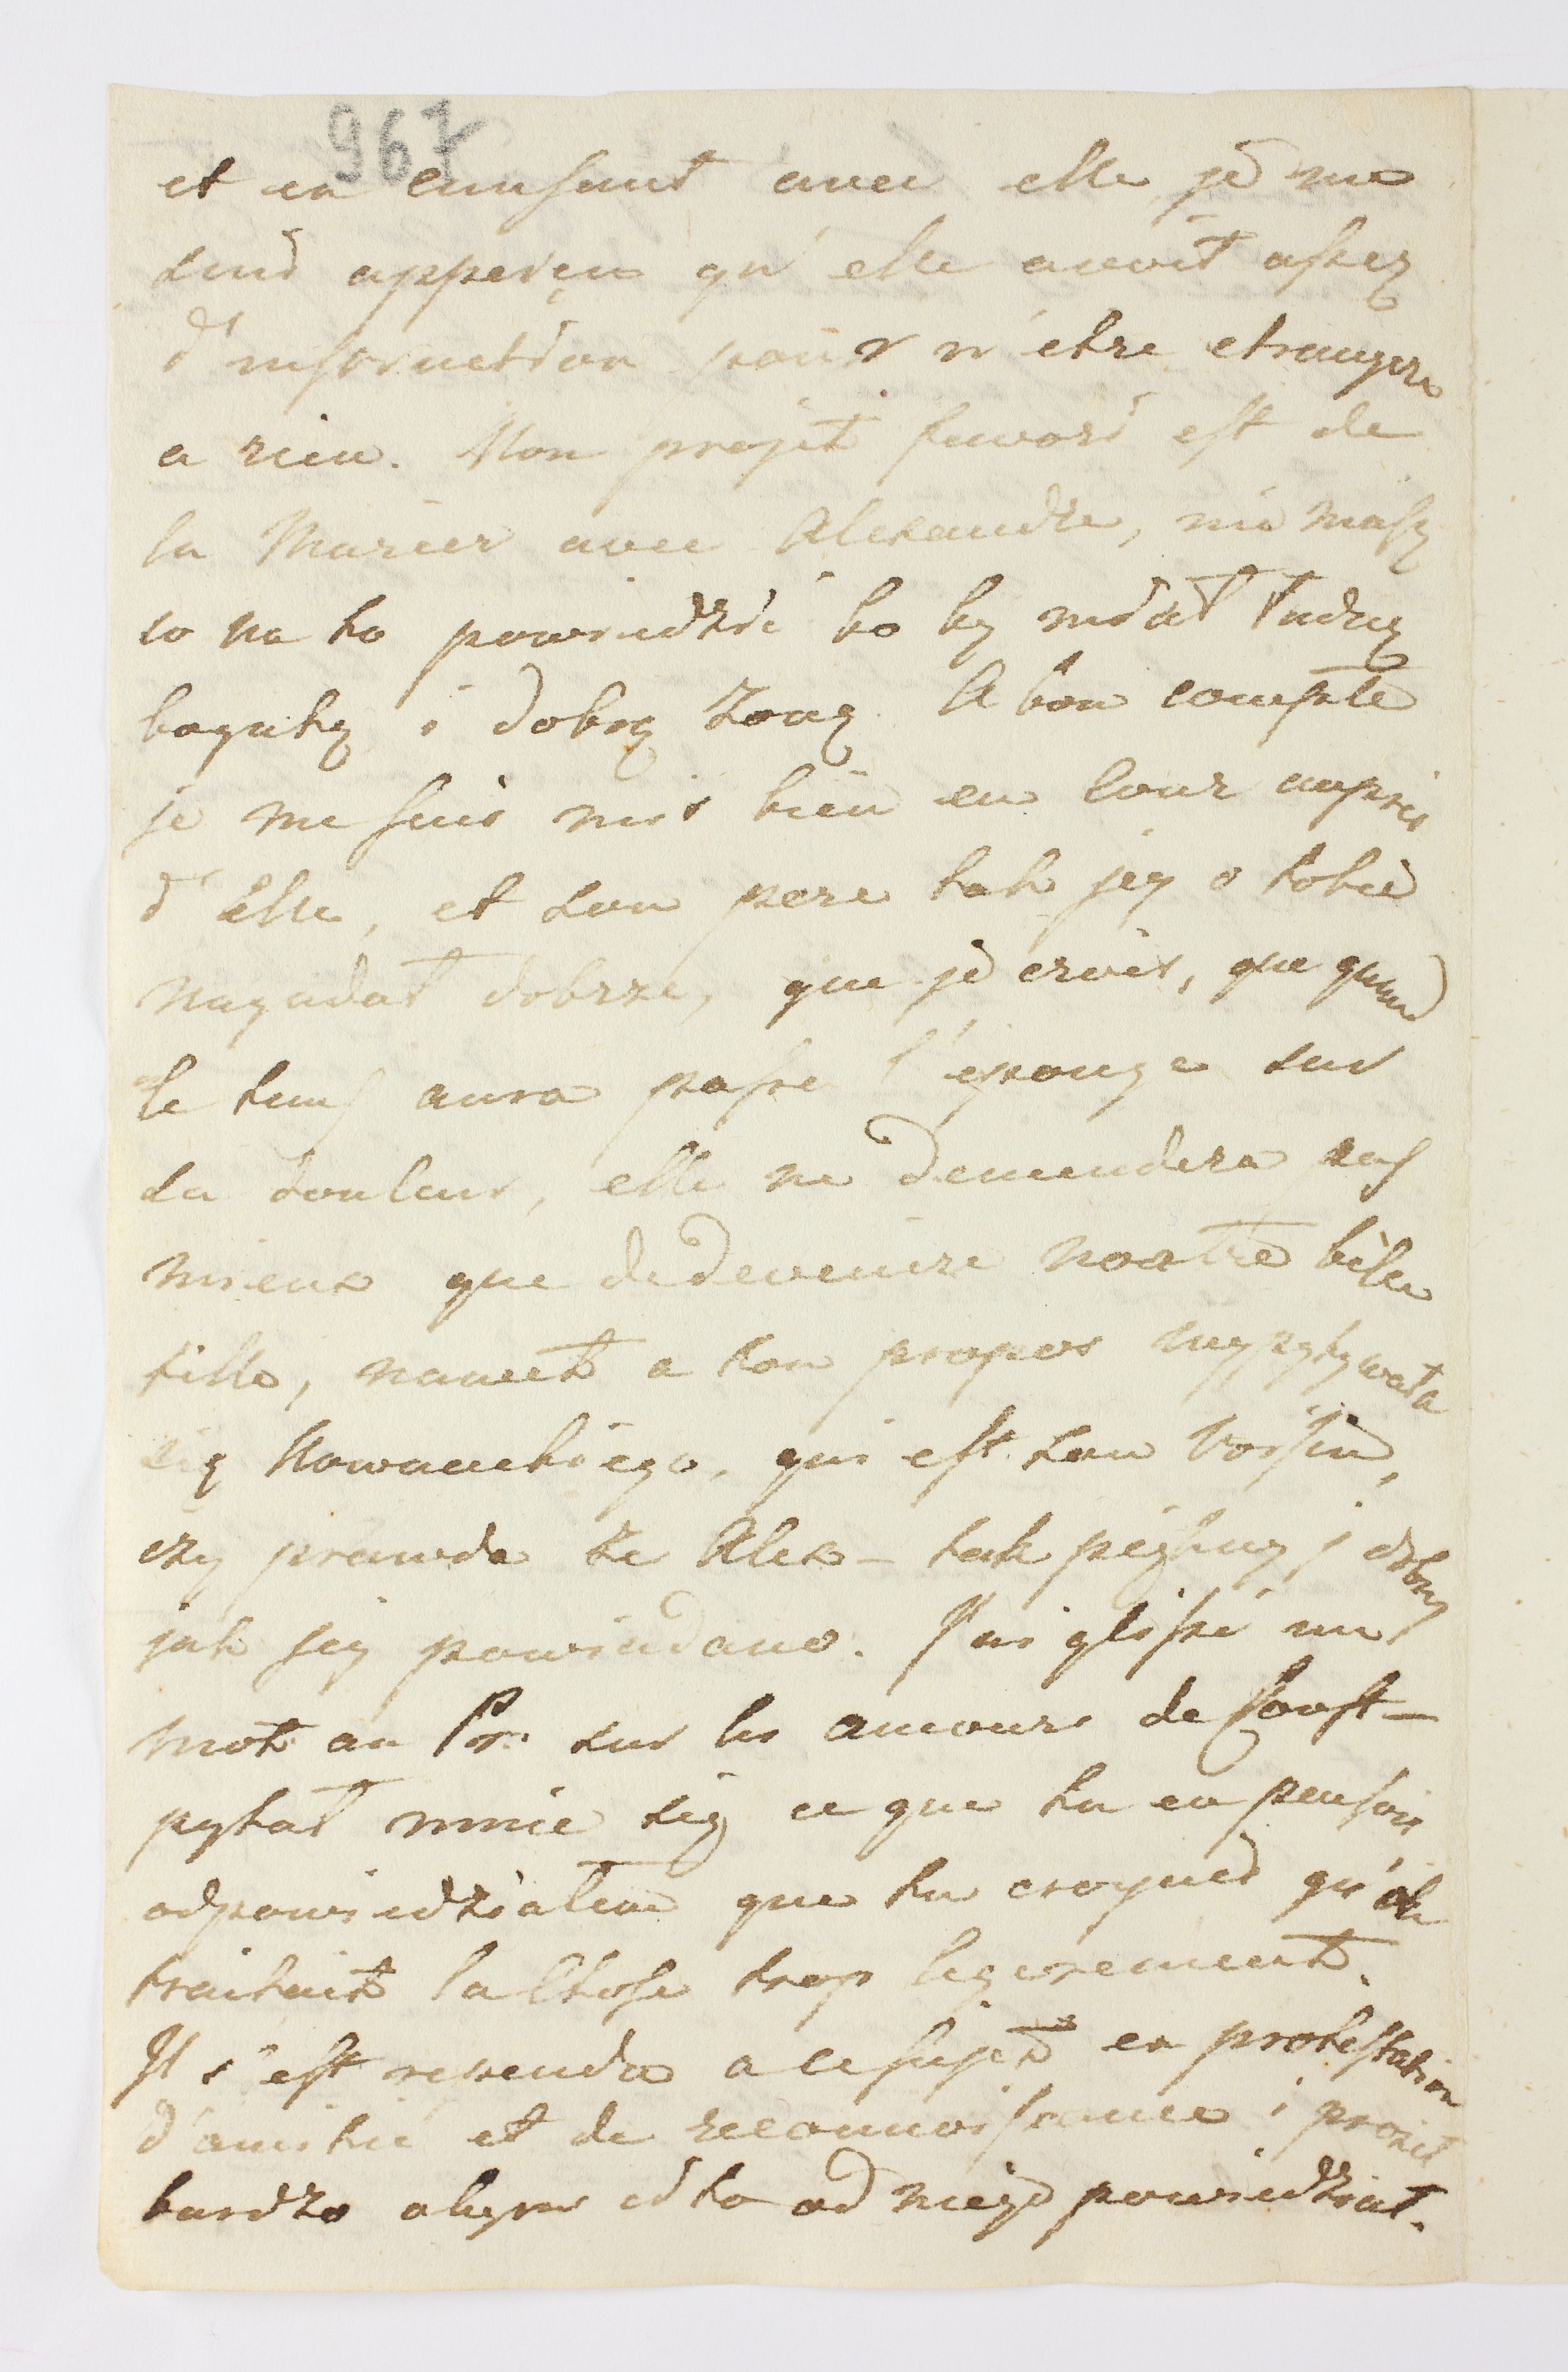 967
et en causant avec elle je me
suis apperçu qu'elle avoit assez
d'instruction pour n'etre etrangere
a rien. Mon projet favori est de
la Marier avec Alexandre, nie masz
co na to powiedzić bo by miał ładną
bogatą i dobrą żonę. A bon compte
je me suis mis bien en cour aupres
d'Elle, et son pere tak jey o tobie
nagadał dobrze, que je crois, que quand
le tems aura passe l'eponge sur
sa douleur, elle ne demandera pas
mieux que de devenire nostre béle
fille, nawet a ton propos wypytywała
się Nowawskiego, qui est son Voisin,
czy prawda że Alex- tak piękny i dobry
jak jey powiadano. J'ai glissé un
mot au Pr: sur les amours de Const-
pytał mnie się ce que tu en pensois
odpowiedziałem que tu croyais qu'il
traitait la Chose trop legerement.
Il s'est rependu a ce sujet en protestation
d'amitié et de reconnoissance i prosił
bardzo abym ci to od niego powiedział.